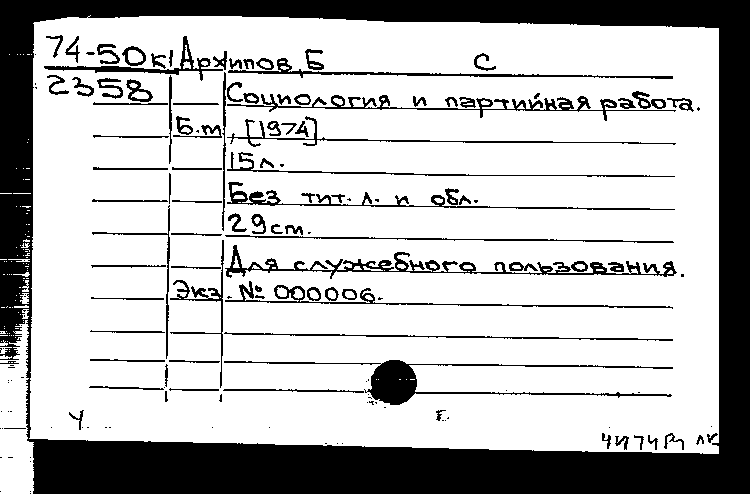 74-50к! Архипов, Б С
2358
Социология и партийная работа.
Б.m, [1974]
15л.
Без тит. л. и обл.
29cm.
Для служебного пользования.
Экз. № 000006.
У Е